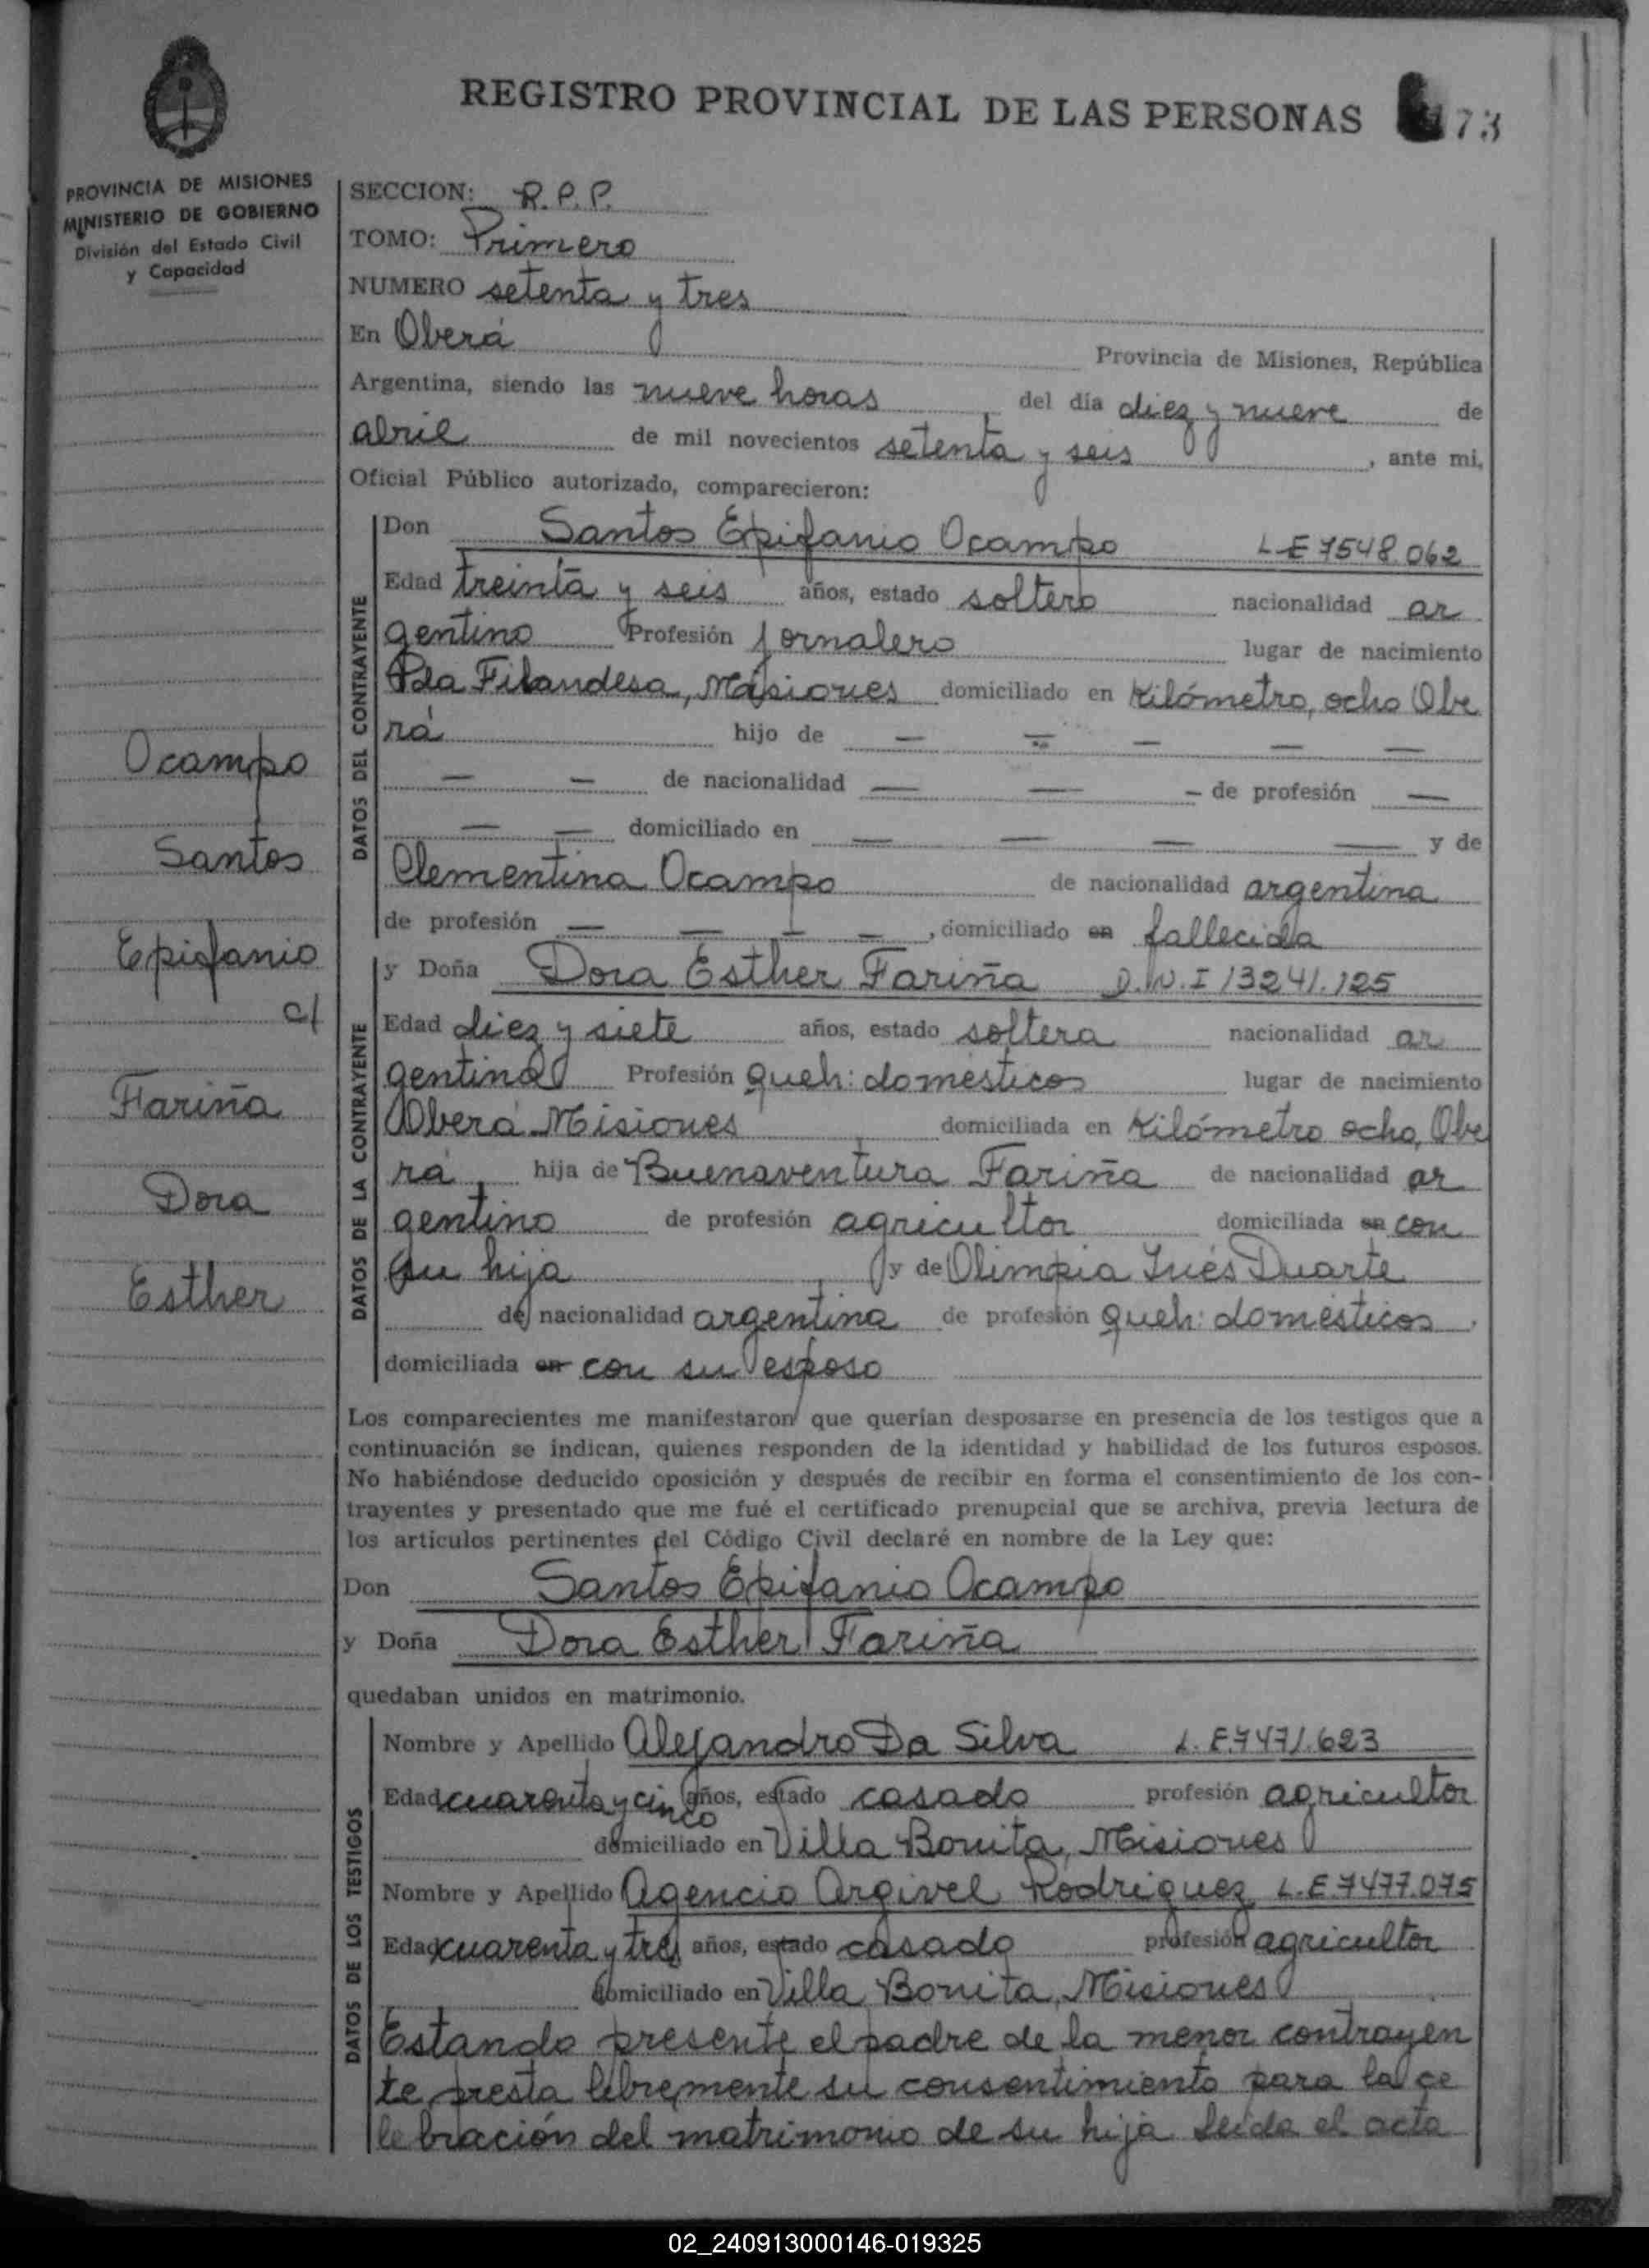 REGISTRO PROVINCIAL DE LAS PERSONAS 73
PROVINCIA DE MISIONES
MINISTERIO DE GOBIERNO
División del Estado Civil
y Capacidad
SECCION: R.P.P.
TOMO: Primero
NUMERO setenta y tres
En Oberá Provincia de Misiones, República
Argentina, siendo las nueve horas, del día diez y nueve de
abril de mil novecientos setenta y seis, ante mi,
Oficial Público autorizado, comparecieron:
DATOS DEL CONTRAYENTE
Don Santos Epifanio Ocampo L E 7548.062
Edad treinta y seis años, estado soltero nacionalidad ar
gentino Profesión jornalero lugar de nacimiento
Pda Filandesa, Misiones domiciliado en Kilómetro, ocho Obe
rá hijo de — — — — —
— — de nacionalidad — — — de profesión —
— — domiciliado en — — — — y de
Clementina Ocampo de nacionalidad argentina
de profesión — — — —, domiciliado en fallecida
DATOS DE LA CONTRAYENTE
y Doña Dora Esther Fariña D.N.I 13241.125
Edad diez y siete años, estado soltera nacionalidad ar
gentina Profesión queh: domésticos lugar de nacimiento
Oberá Misiones domiciliada en Kilómetro ocho, Obe
rá, hija de Buenaventura Fariña de nacionalidad ar
gentino de profesión agricultor domiciliada en con
su hija y de Olimpia Inés Duarte
de nacionalidad argentina de profesión queh: domésticos.
domiciliada en con su esposo
Los comparecientes me manifestaron que querían desposarse en presencia de los testigos que a
continuación se indican, quienes responden de la identidad y habilidad de los futuros esposos.
No habiéndose deducido oposición y después de recibir en forma el consentimiento de los con-
trayentes y presentado que me fué el certificado prenupcial que se archiva, previa lectura de
los artículos pertinentes del Código Civil declaré en nombre de la Ley que:
Don Santos Epifanio Ocampo
y Doña Dora Esther Fariña
quedaban unidos en matrimonio.
DATOS DE LOS TESTIGOS
Nombre y Apellido Alejandro Da Silva L. E.7471.623
Edad cuarenta y cinco años, estado casado profesión agricultor
domiciliado en Villa Bonita, Misiones
Nombre y Apellido Agencio Argivel Rodriguez L.E.7477.075
Edad cuarenta y tres años, estado casado profesión agricultor
domiciliado en Villa Bonita, Misiones
Estando presente el padre de la menor contrayen
te, presta libremente su consentimiento para la ce
lebración del matrimonio de su hija. Leida el acta
Ocampo
Santos
Epifanio
c/
Fariña
Dora
Esther
02_240913000146-019325